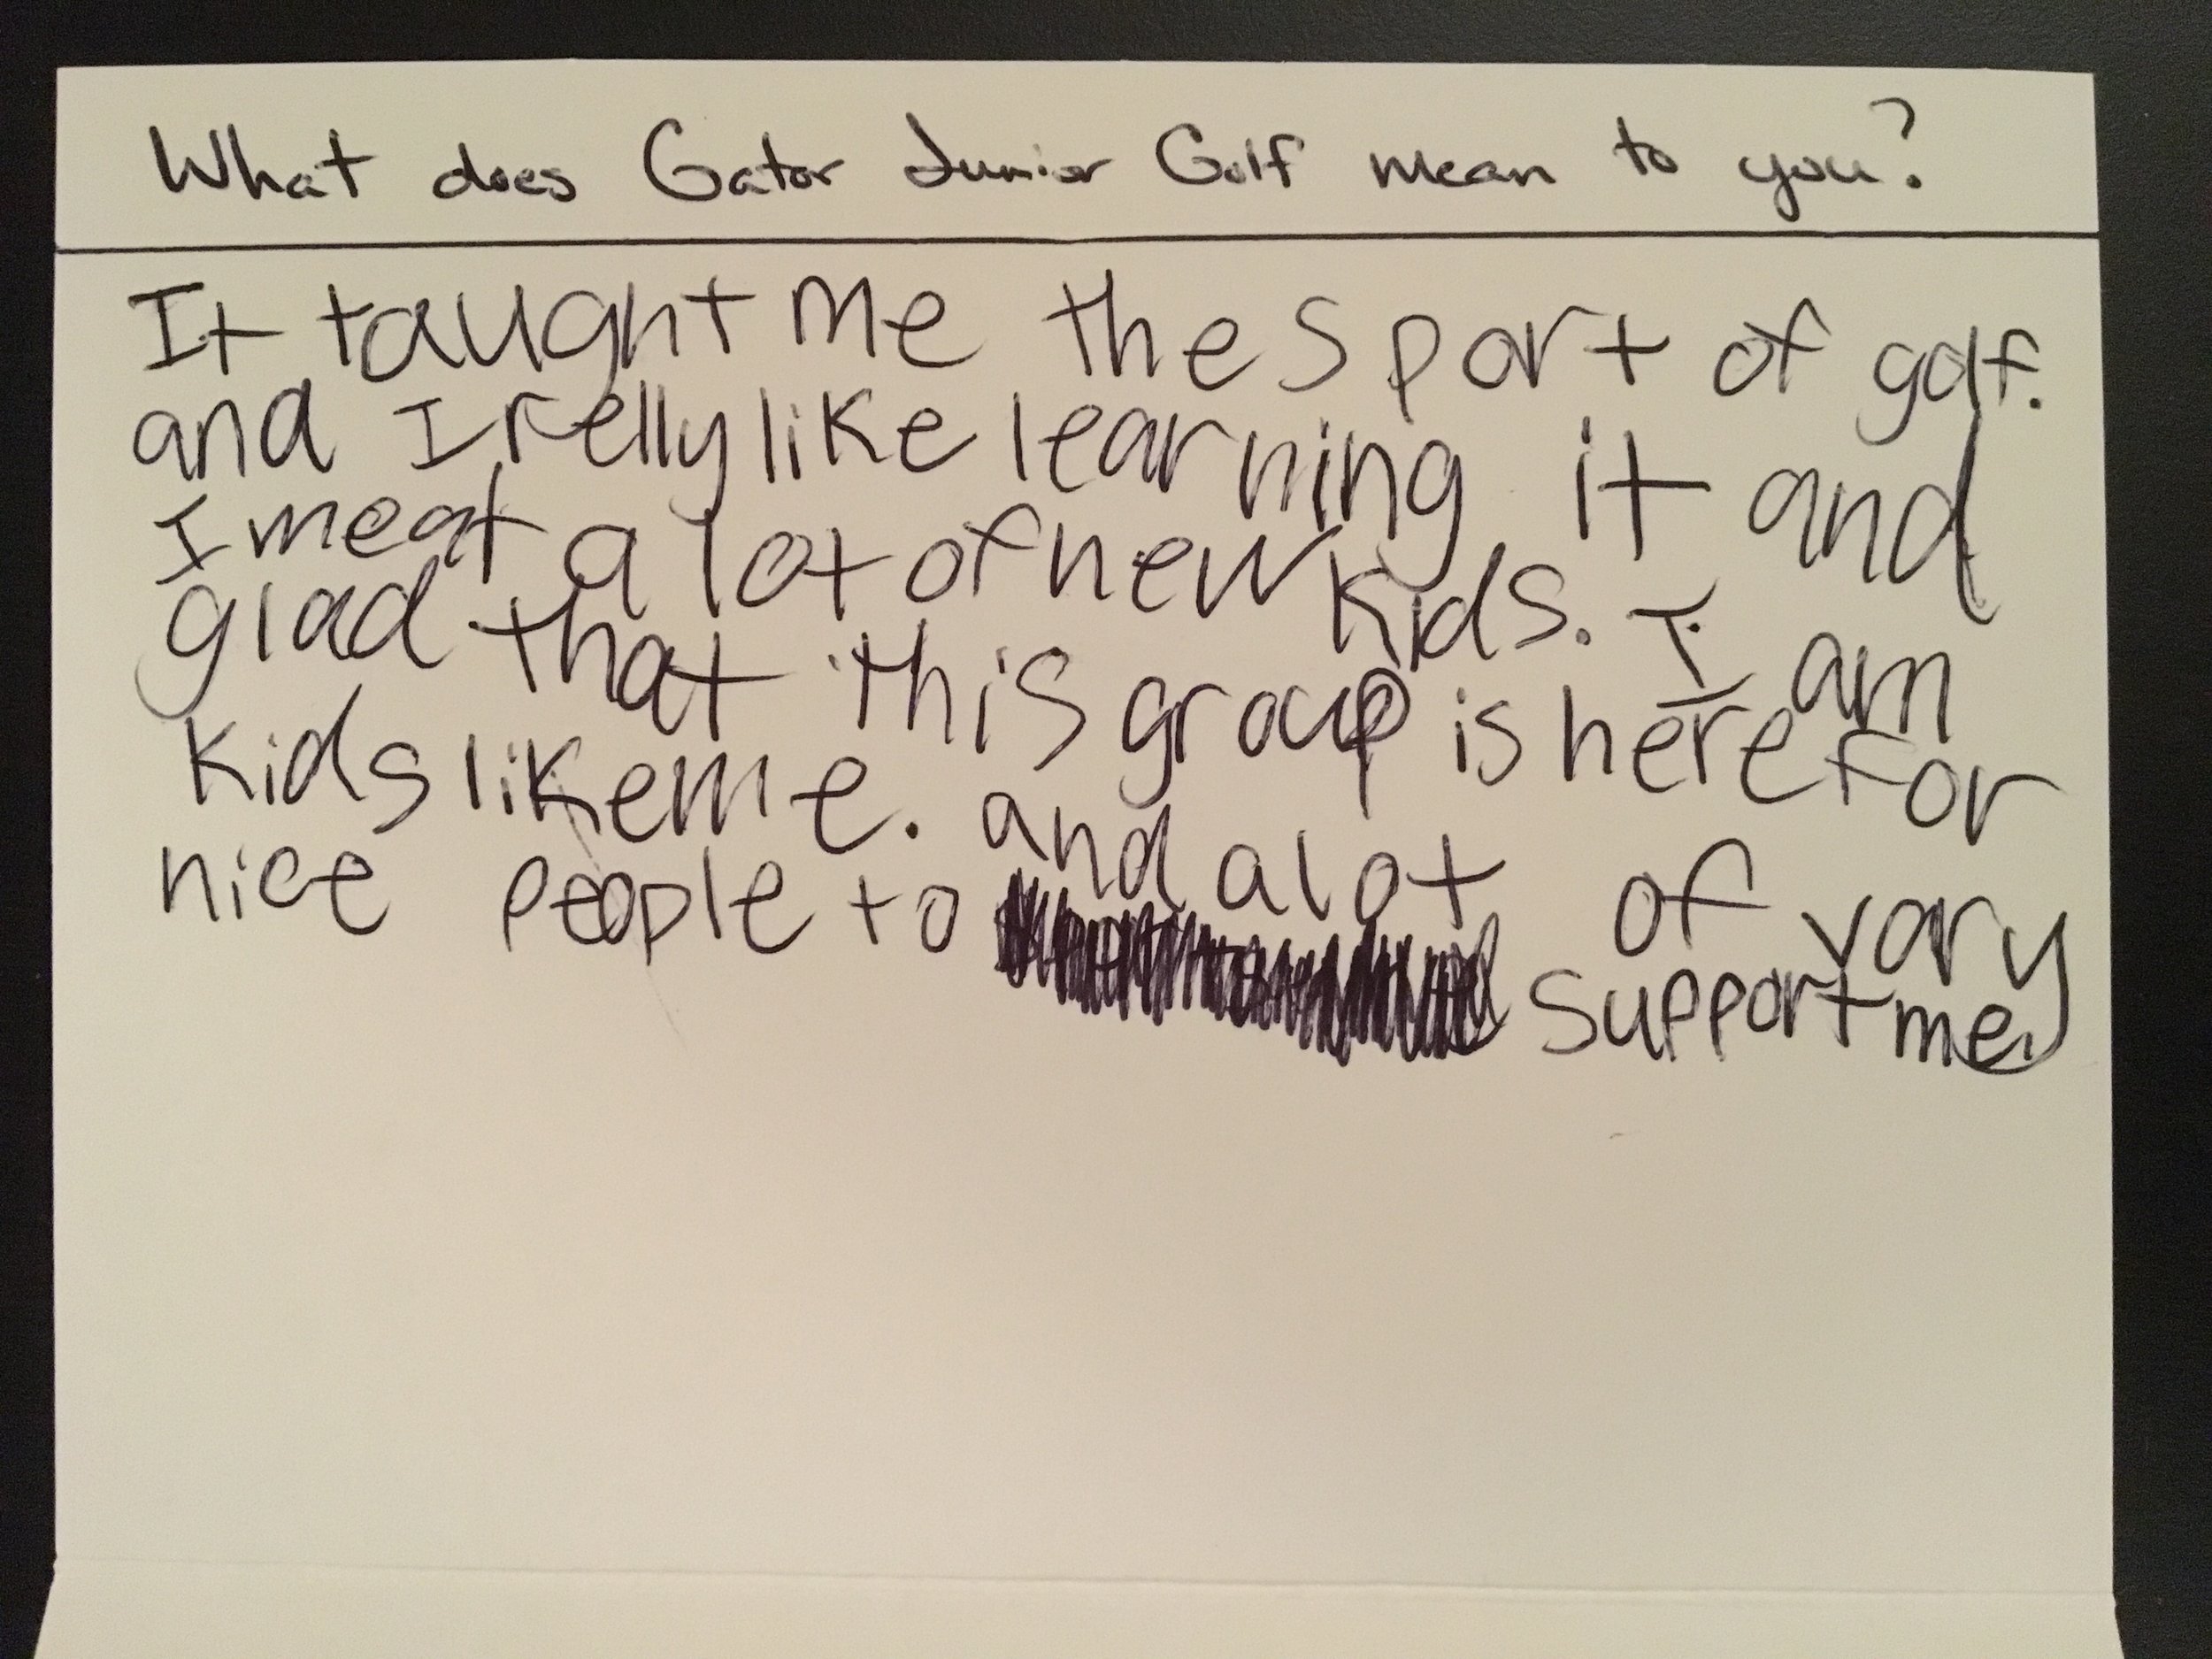 What does Gator Junior Golf mean to you?
It taught me the sport of golf.
and I relly like learning it and
I meat a lot of new kids. I am
glad that this group is here for
kids like me. and a lot of vary
nice people to support me